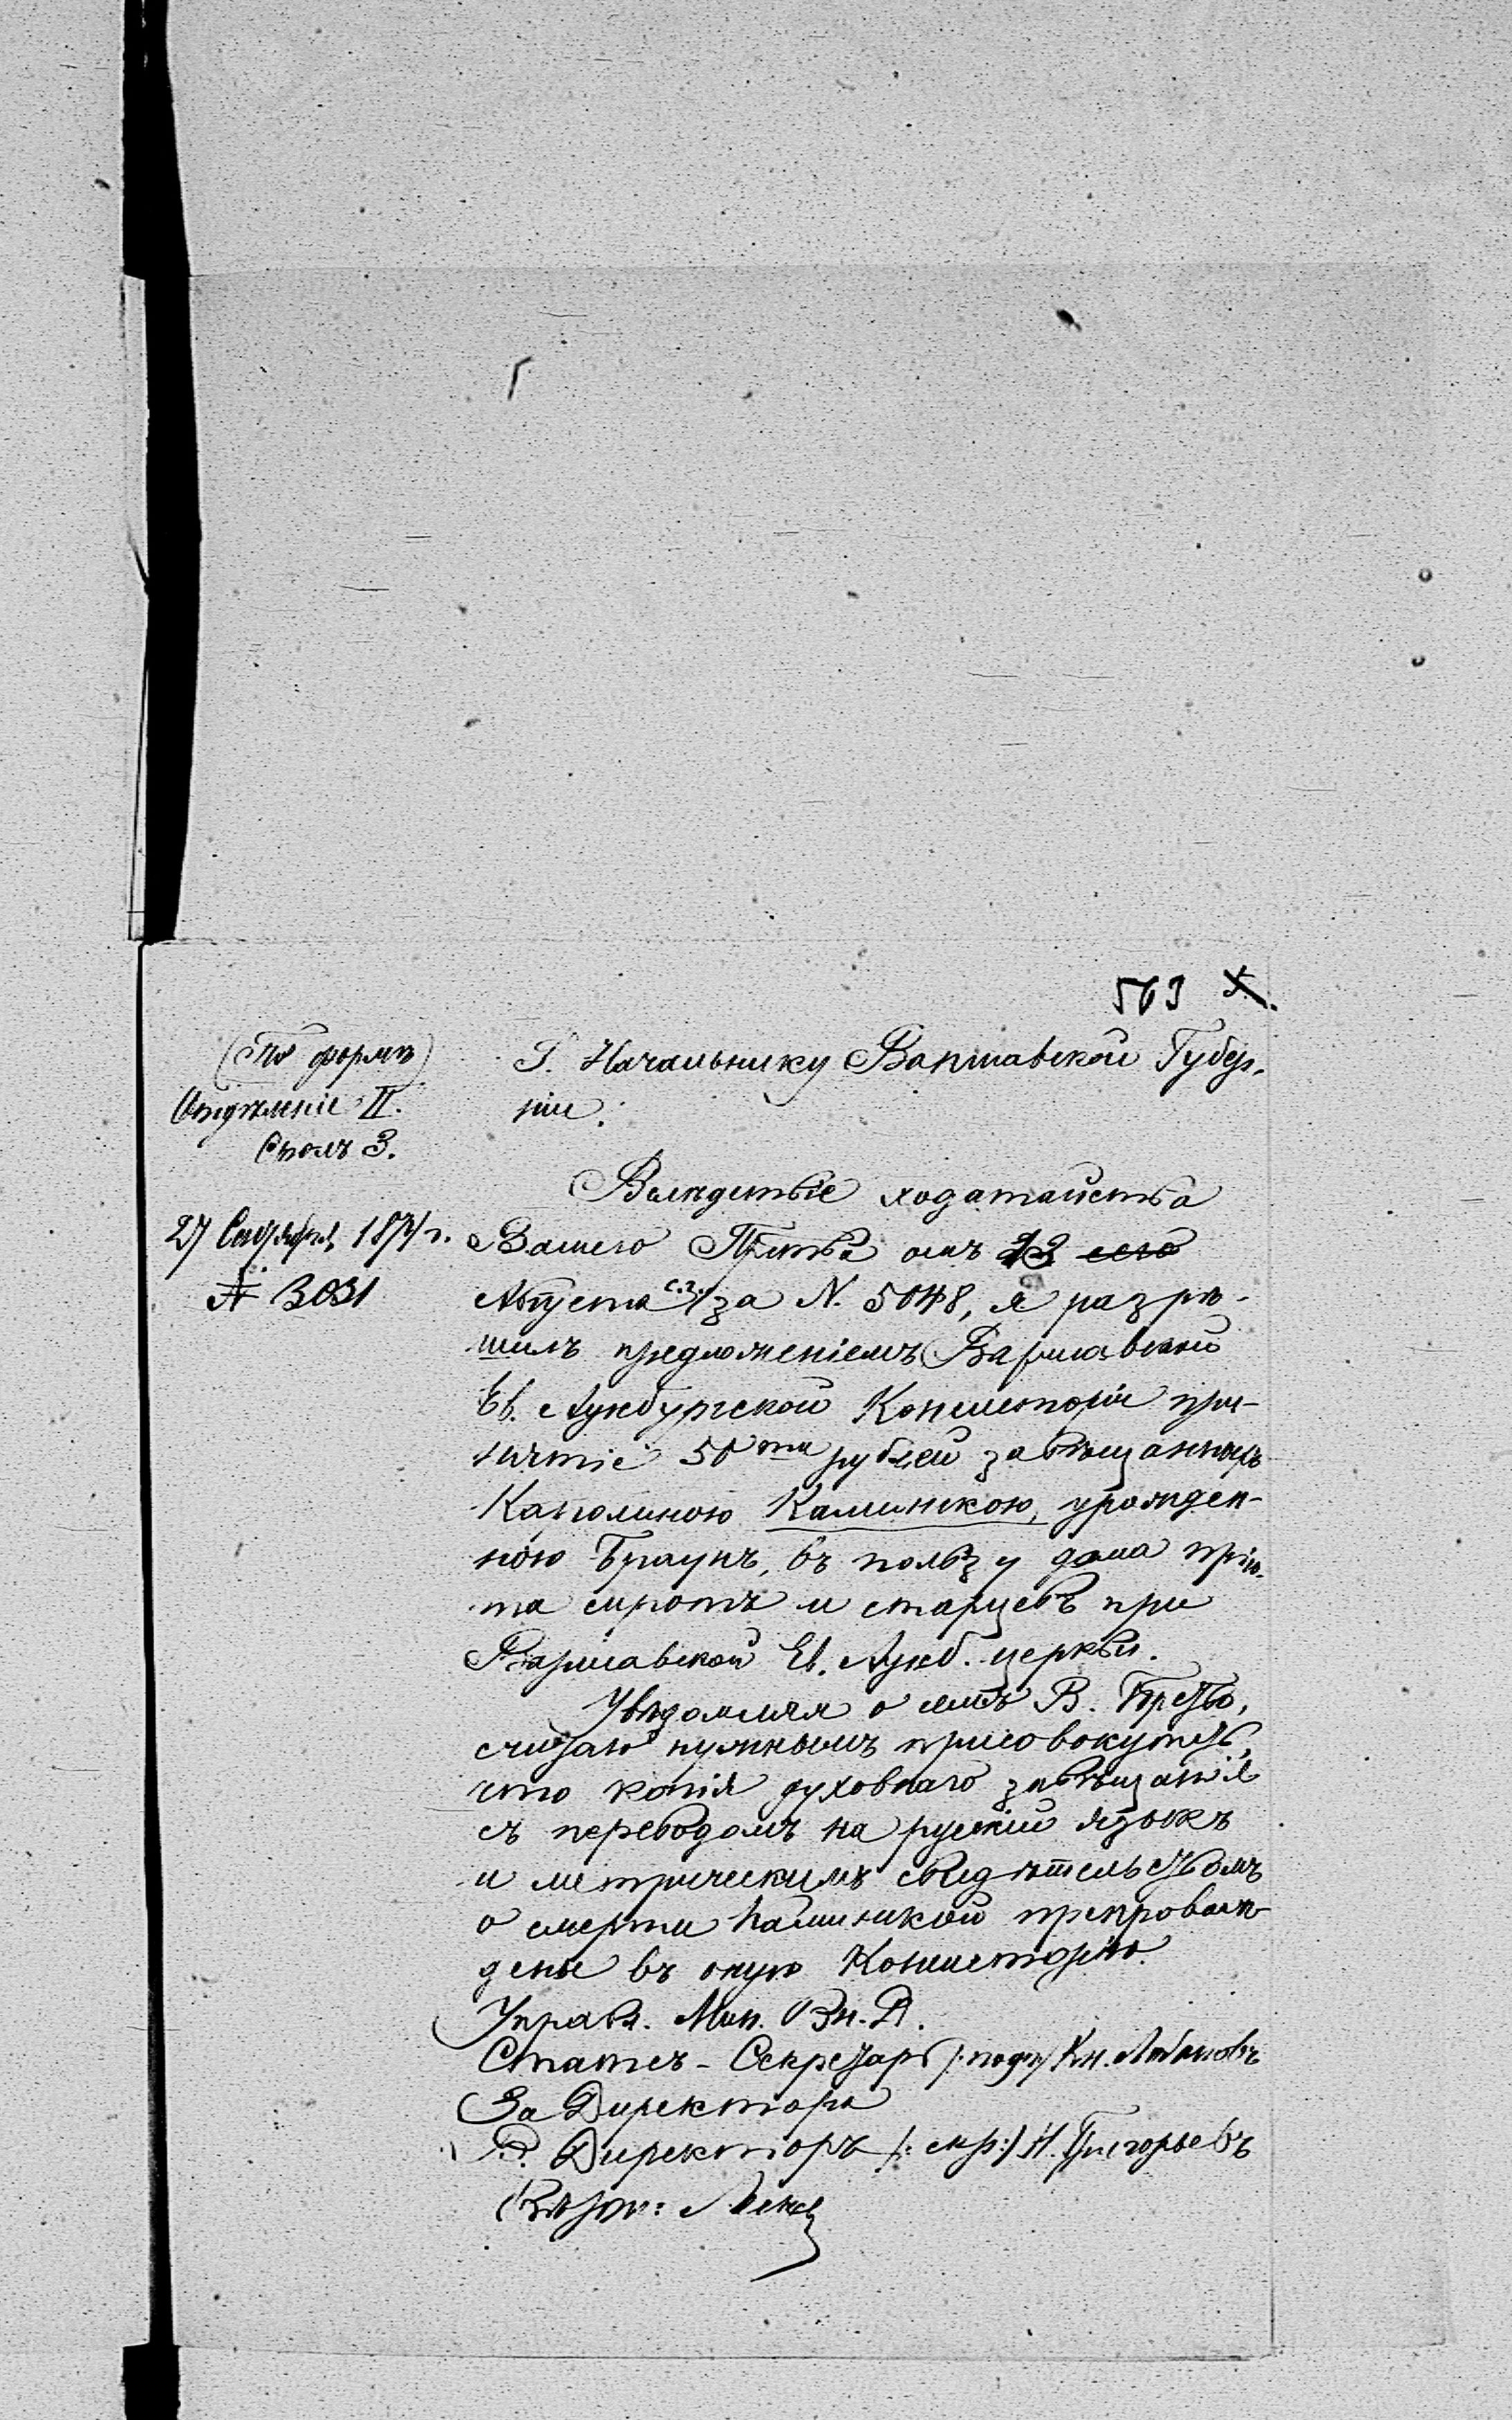 563
(По формѣ)
Отдѣленіе II.
Столъ 3.
27 Сентября 1874 г.
№ 3031
Г. Начальнику Варшавской Губер-
ніи.
Вслѣдствіе ходатайства
Вашего Прства отъ 23 сего
Августа с.г. за N. 5048, я разрѣ-
шилъ предложеніемъ Варшавской
Ев. Аугсбургской Консисторіи при-
нятіе 50ти рублей завѣщанныхъ
Каролиною Каминскою, урожден-
ною Браунъ, въ пользу дома прію-
та сиротъ и старцевъ при
Варшавской Ев. Аугсб. церкви.
Увѣдомляя о семъ В. Прство,
считаю нужнымъ присовокупить,
что копія духовнаго завѣщанія
съ переводомъ на русскій языкъ
и метрическимъ свидѣтельствомъ
о смерти Каминской препровож-
дены въ оную Консисторію.
Управл. Мин. Вн. Д.
Статсъ-Секретарь /:подп:/ Кн. Лобановъ
За Директора
В. Директоръ /:скр:/ Н. Григорьевъ